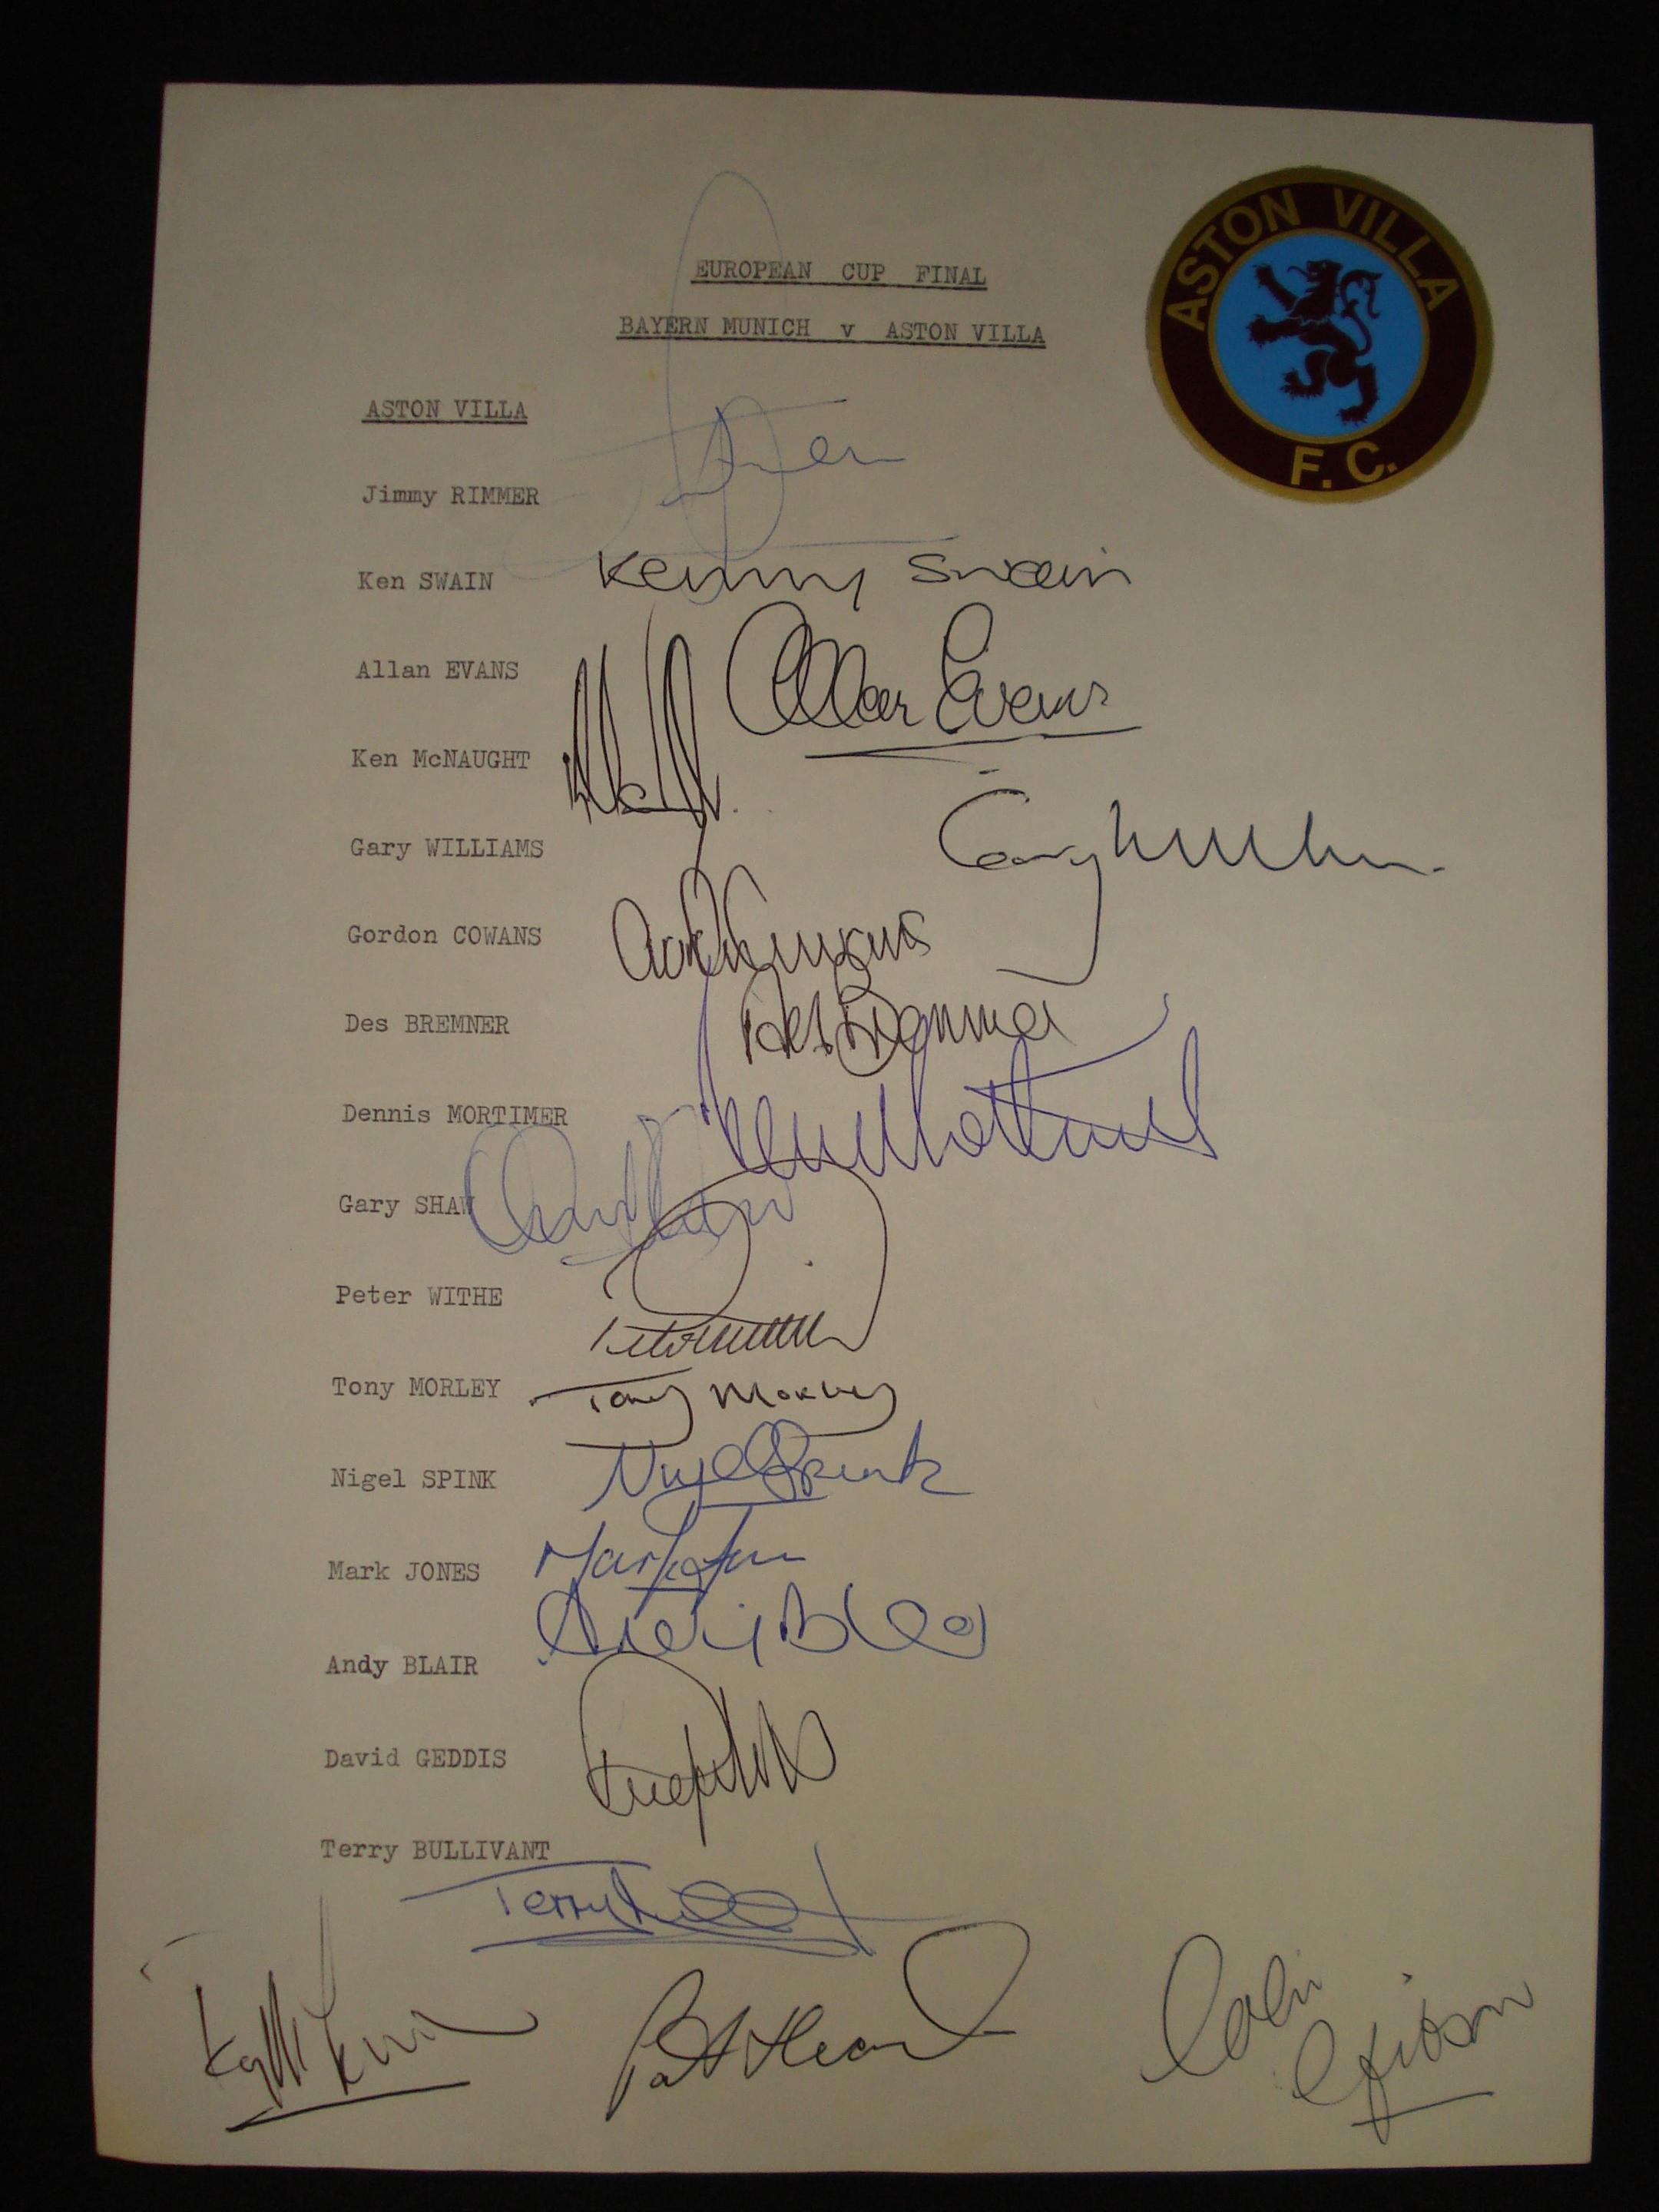 EUROPEAN CUP FINAL
BAYERN MUNICH v ASTON VILLA
ASTON VILLA
F.C.
ASTON VILLA
Jimmy RIMMER
Ken SWAIN Kenny Swain
Allan EVANS Allan Evans
Ken McNAUGHT
Gary WILLIAMS
Gordon COWANS
Des BREMNER Des Bremner
Dennis MORTIMER
Gary SHAW
Peter WITHE
Tony MORLEY Tony Morley
Nigel SPINK Nigel Spink
Mark JONES
Andy BLAIR
David GEDDIS
Terry BULLIVANT
Terry
Pat Heard
Colin
Gibson